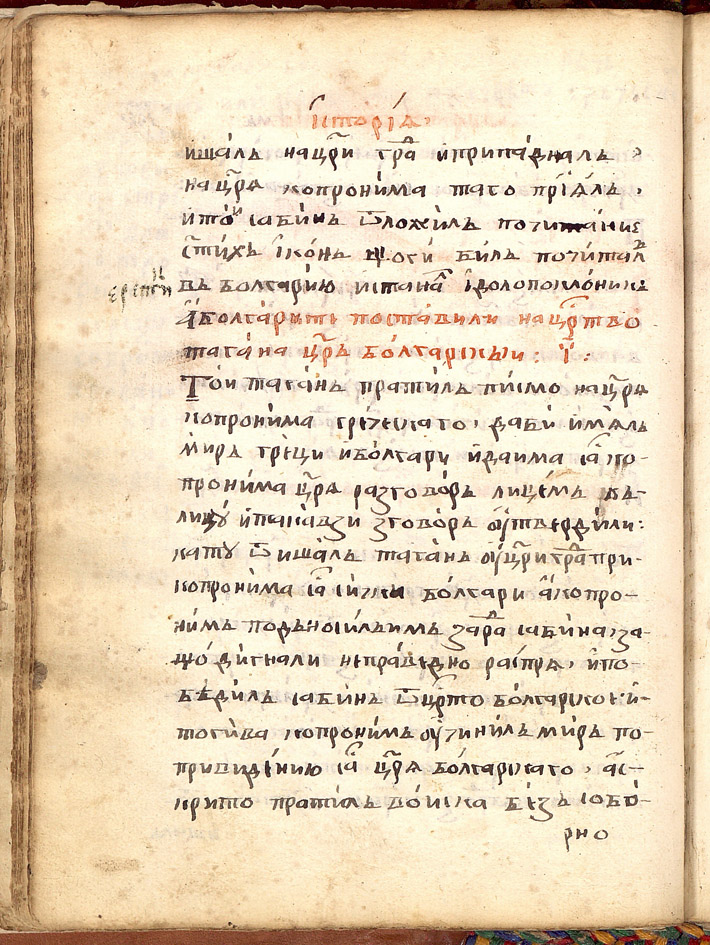 Їсторїѧ
ишалъ на цр҃и град и припаднаⷧ҇лъ
на цр҃ѧ копронима таго прїѧлъ,
и той сабинъ ѿложилъ почитание
ст҃ихъ їконъ що си билъ почиталъ
въ болгарию и стана їдолопоклоникъ
еретикъ
а болгарите поставили на црⷭ҇тво
тагана цр҃ъ болгарскыи: і҃:
Той таганъ пратилъ писмо на цр҃ѧ
копронима греческаго, да би имѧлъ
миръ греци и болгари и да има са ко-
пронима цр҃ѧ разговоръ лицемъ къ
лицу и такавзи зговоръ ѹтвердили:
като ѿишалъ таганъ ѹ цр҃и град при
копронима са сички болгари а копро-
нимъ подъносилъ имъ зара сабина, за-
що дигнали неправедно распрѧ, и по-
бѣдилъ сабинъ ѿ црⷭ҇тво болгарское: и
тогива копронимъ ѹчинилъ миръ по
привидѣнию са цр҃ѧ болгарскаго, а с-
крито пратилъ воиска безъ собо-
рно